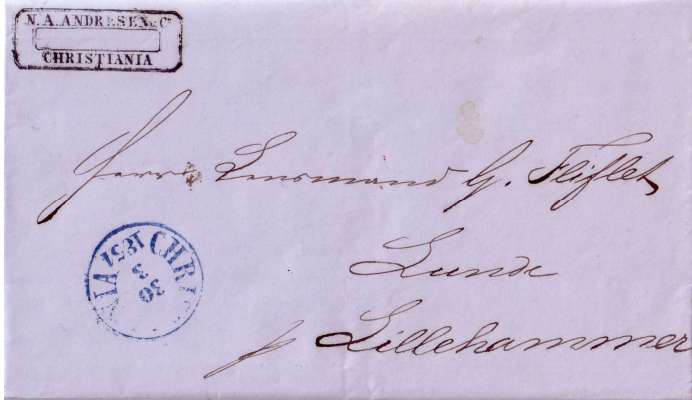 N. A. ANDRESEN & Cº
CHRISTIANIA
Herr Lensmand G. Fliflet
Lunde
p Lillehammer
CHRISTIANIA 1851
30 3